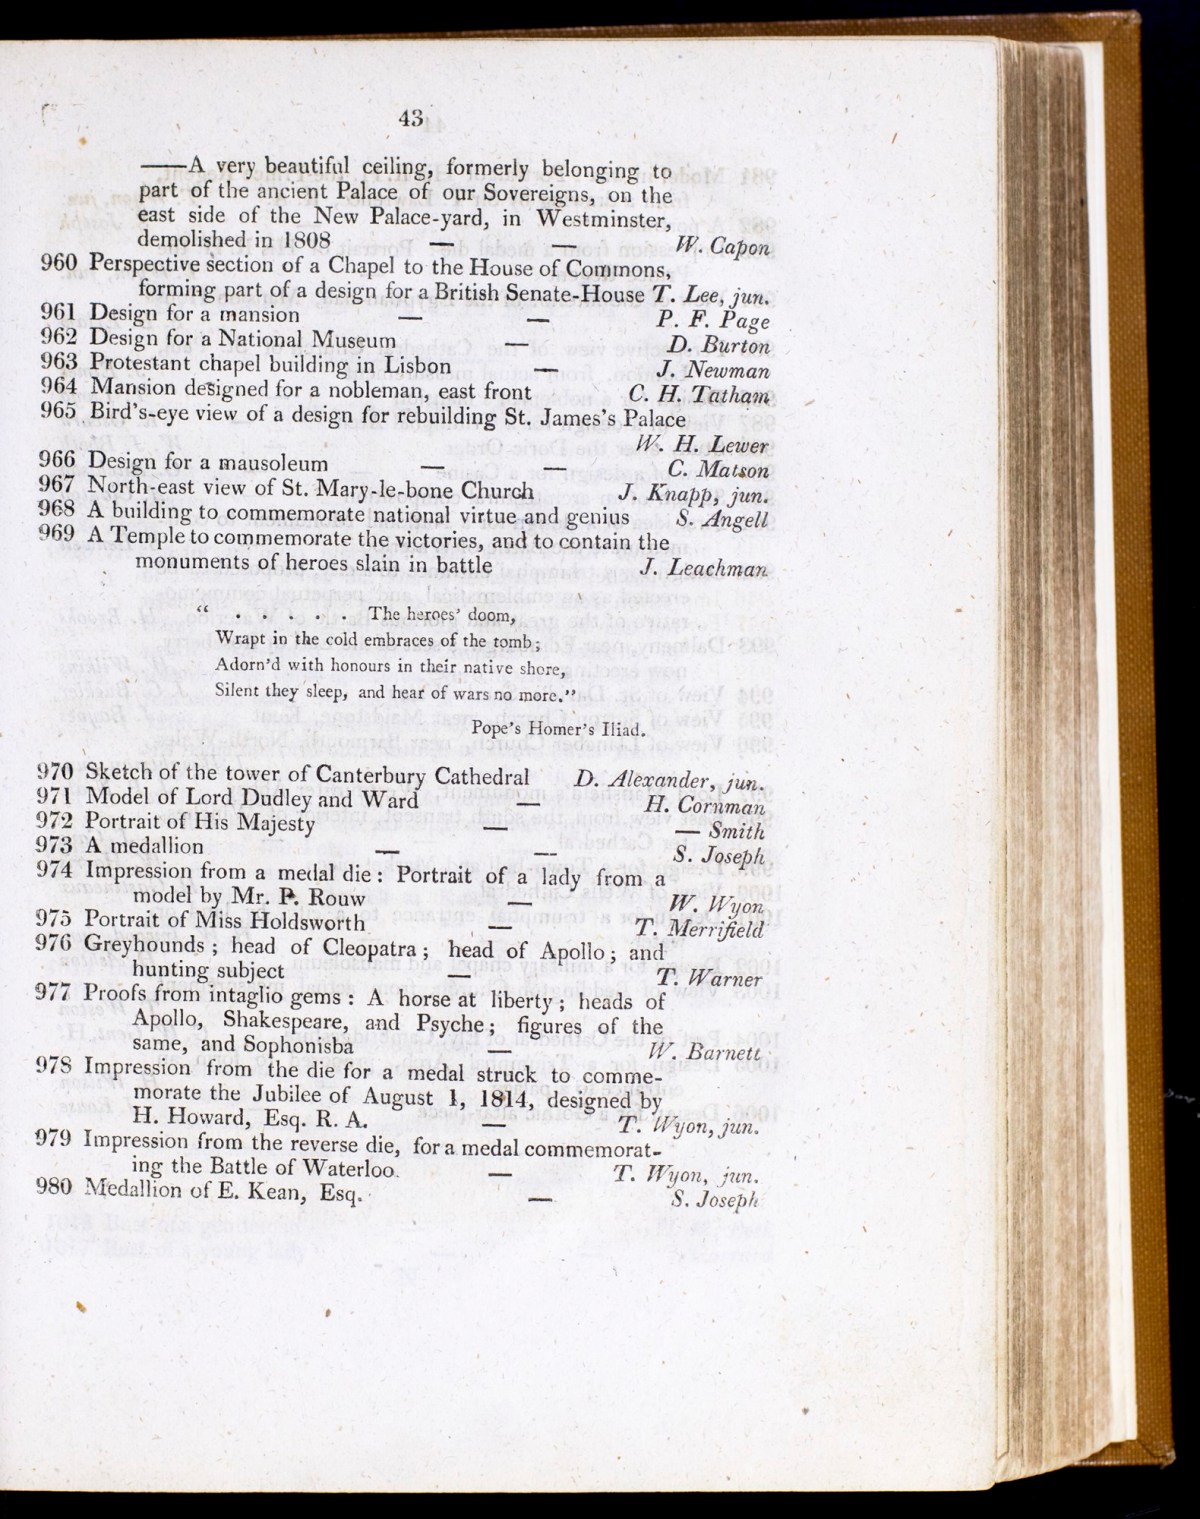 43
——A very beautiful ceiling, formerly belonging to
part of the ancient Palace of our Sovereigns, on the
east side of the New Palace-yard, in Westminster,
demolished in 1808 — — W. Capon
960 Perspective section of a Chapel to the House of Commons,
forming part of a design for a British Senate-House T. Lee, jun.
961 Design for a mansion — — P. F. Page
962 Design for a National Museum — D. Burton
963 Protestant chapel building in Lisbon — J. Newman
964 Mansion designed for a nobleman, east front C. H. Tatham
965 Bird's-eye view of a design for rebuilding St. James's Palace
W. H. Lewer
966 Design for a mausoleum — — C. Matson
967 North-east view of St. Mary-le-bone Church J. Knapp, jun.
968 A building to commemorate national virtue and genius S. Angell
969 A Temple to commemorate the victories, and to contain the
monuments of heroes slain in battle J. Leachman
" . . . . . The heroes' doom,
Wrapt in the cold embraces of the tomb;
Adorn'd with honours in their native shore,
Silent they sleep, and hear of wars no more."
Pope's Homer's Iliad.
970 Sketch of the tower of Canterbury Cathedral D. Alexander, jun.
971 Model of Lord Dudley and Ward — H. Cornman
972 Portrait of His Majesty — — Smith
973 A medallion — — S. Joseph
974 Impression from a medal die: Portrait of a lady from a
model by Mr. P. Rouw — W. Wyon
975 Portrait of Miss Holdsworth — T. Merrifield
976 Greyhounds; head of Cleopatra; head of Apollo; and
hunting subject — T. Warner
977 Proofs from intaglio gems: A horse at liberty; heads of
Apollo, Shakespeare, and Psyche; figures of the
same, and Sophonisba — W. Barnett
978 Impression from the die for a medal struck to comme-
morate the Jubilee of August 1, 1814, designed by
H. Howard, Esq. R. A. — T. Wyon, jun.
979 Impression from the reverse die, for a medal commemorat-
ing the Battle of Waterloo. — T. Wyon, jun.
980 Medallion of E. Kean, Esq. — S. Joseph